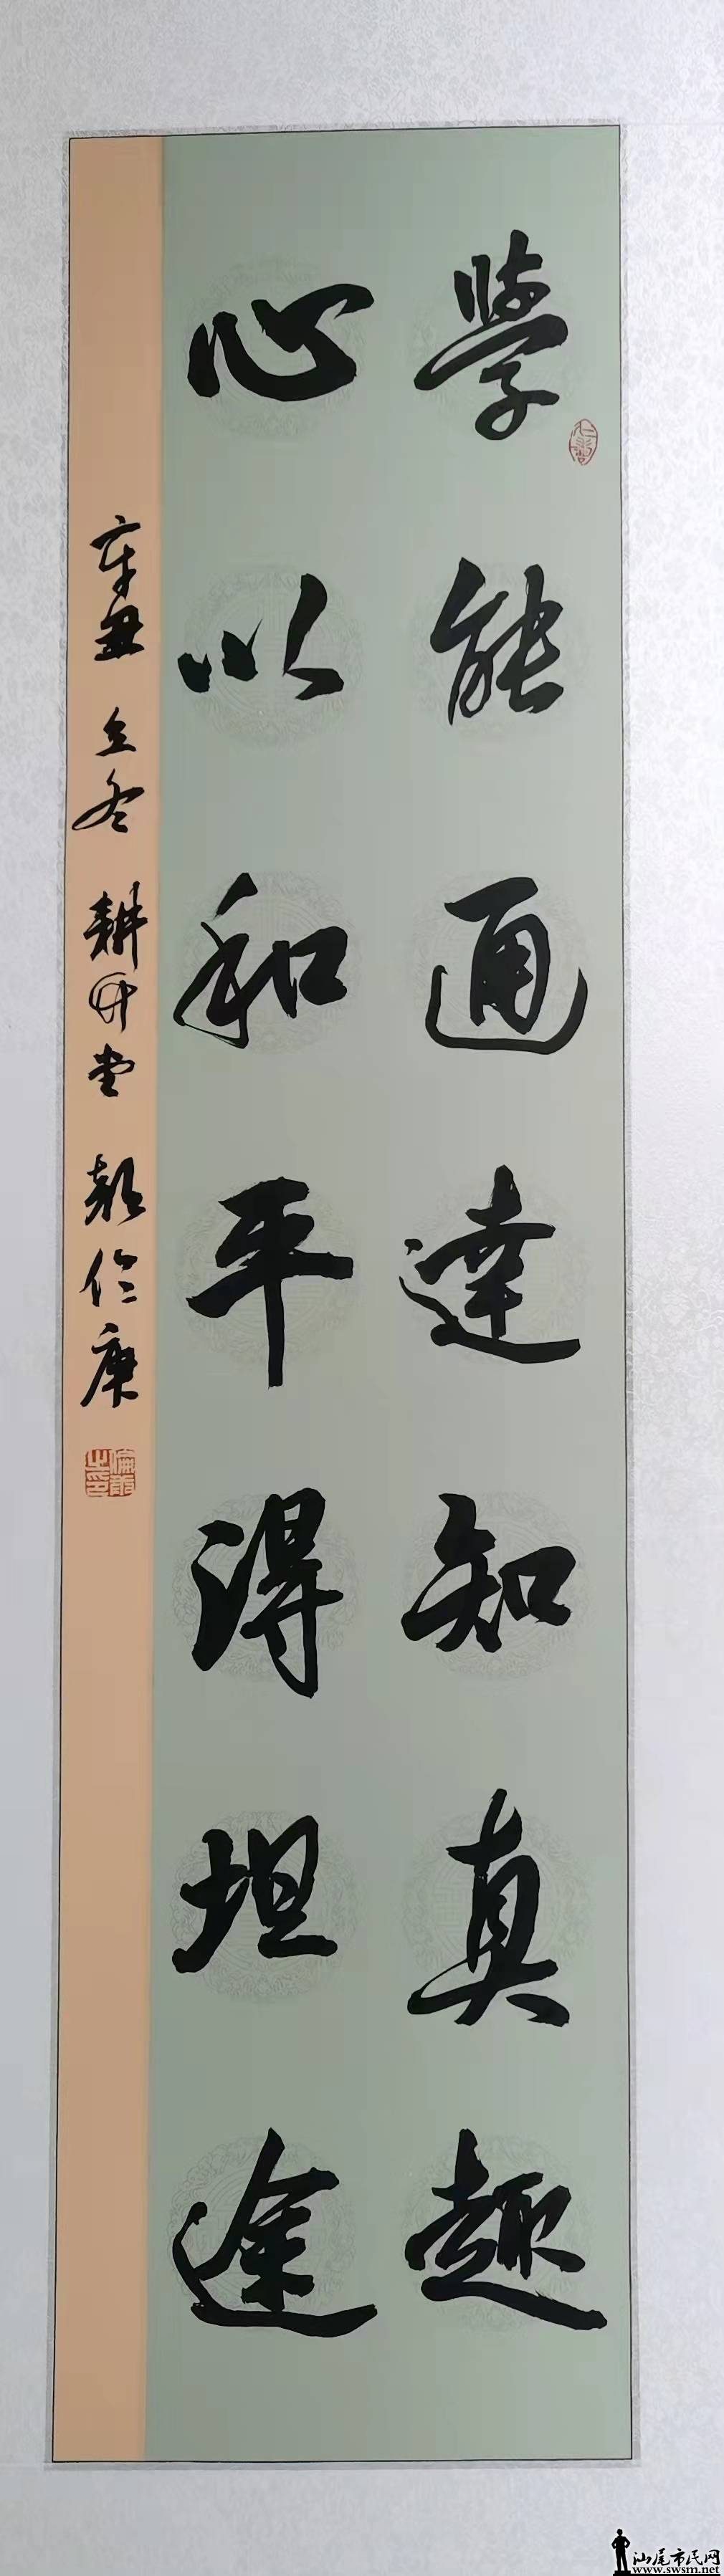 學能通達知真趣
心以和平得坦途
辛丑 立冬 耕竹堂 彭伦庚
汕尾市民网
www.swsm.net